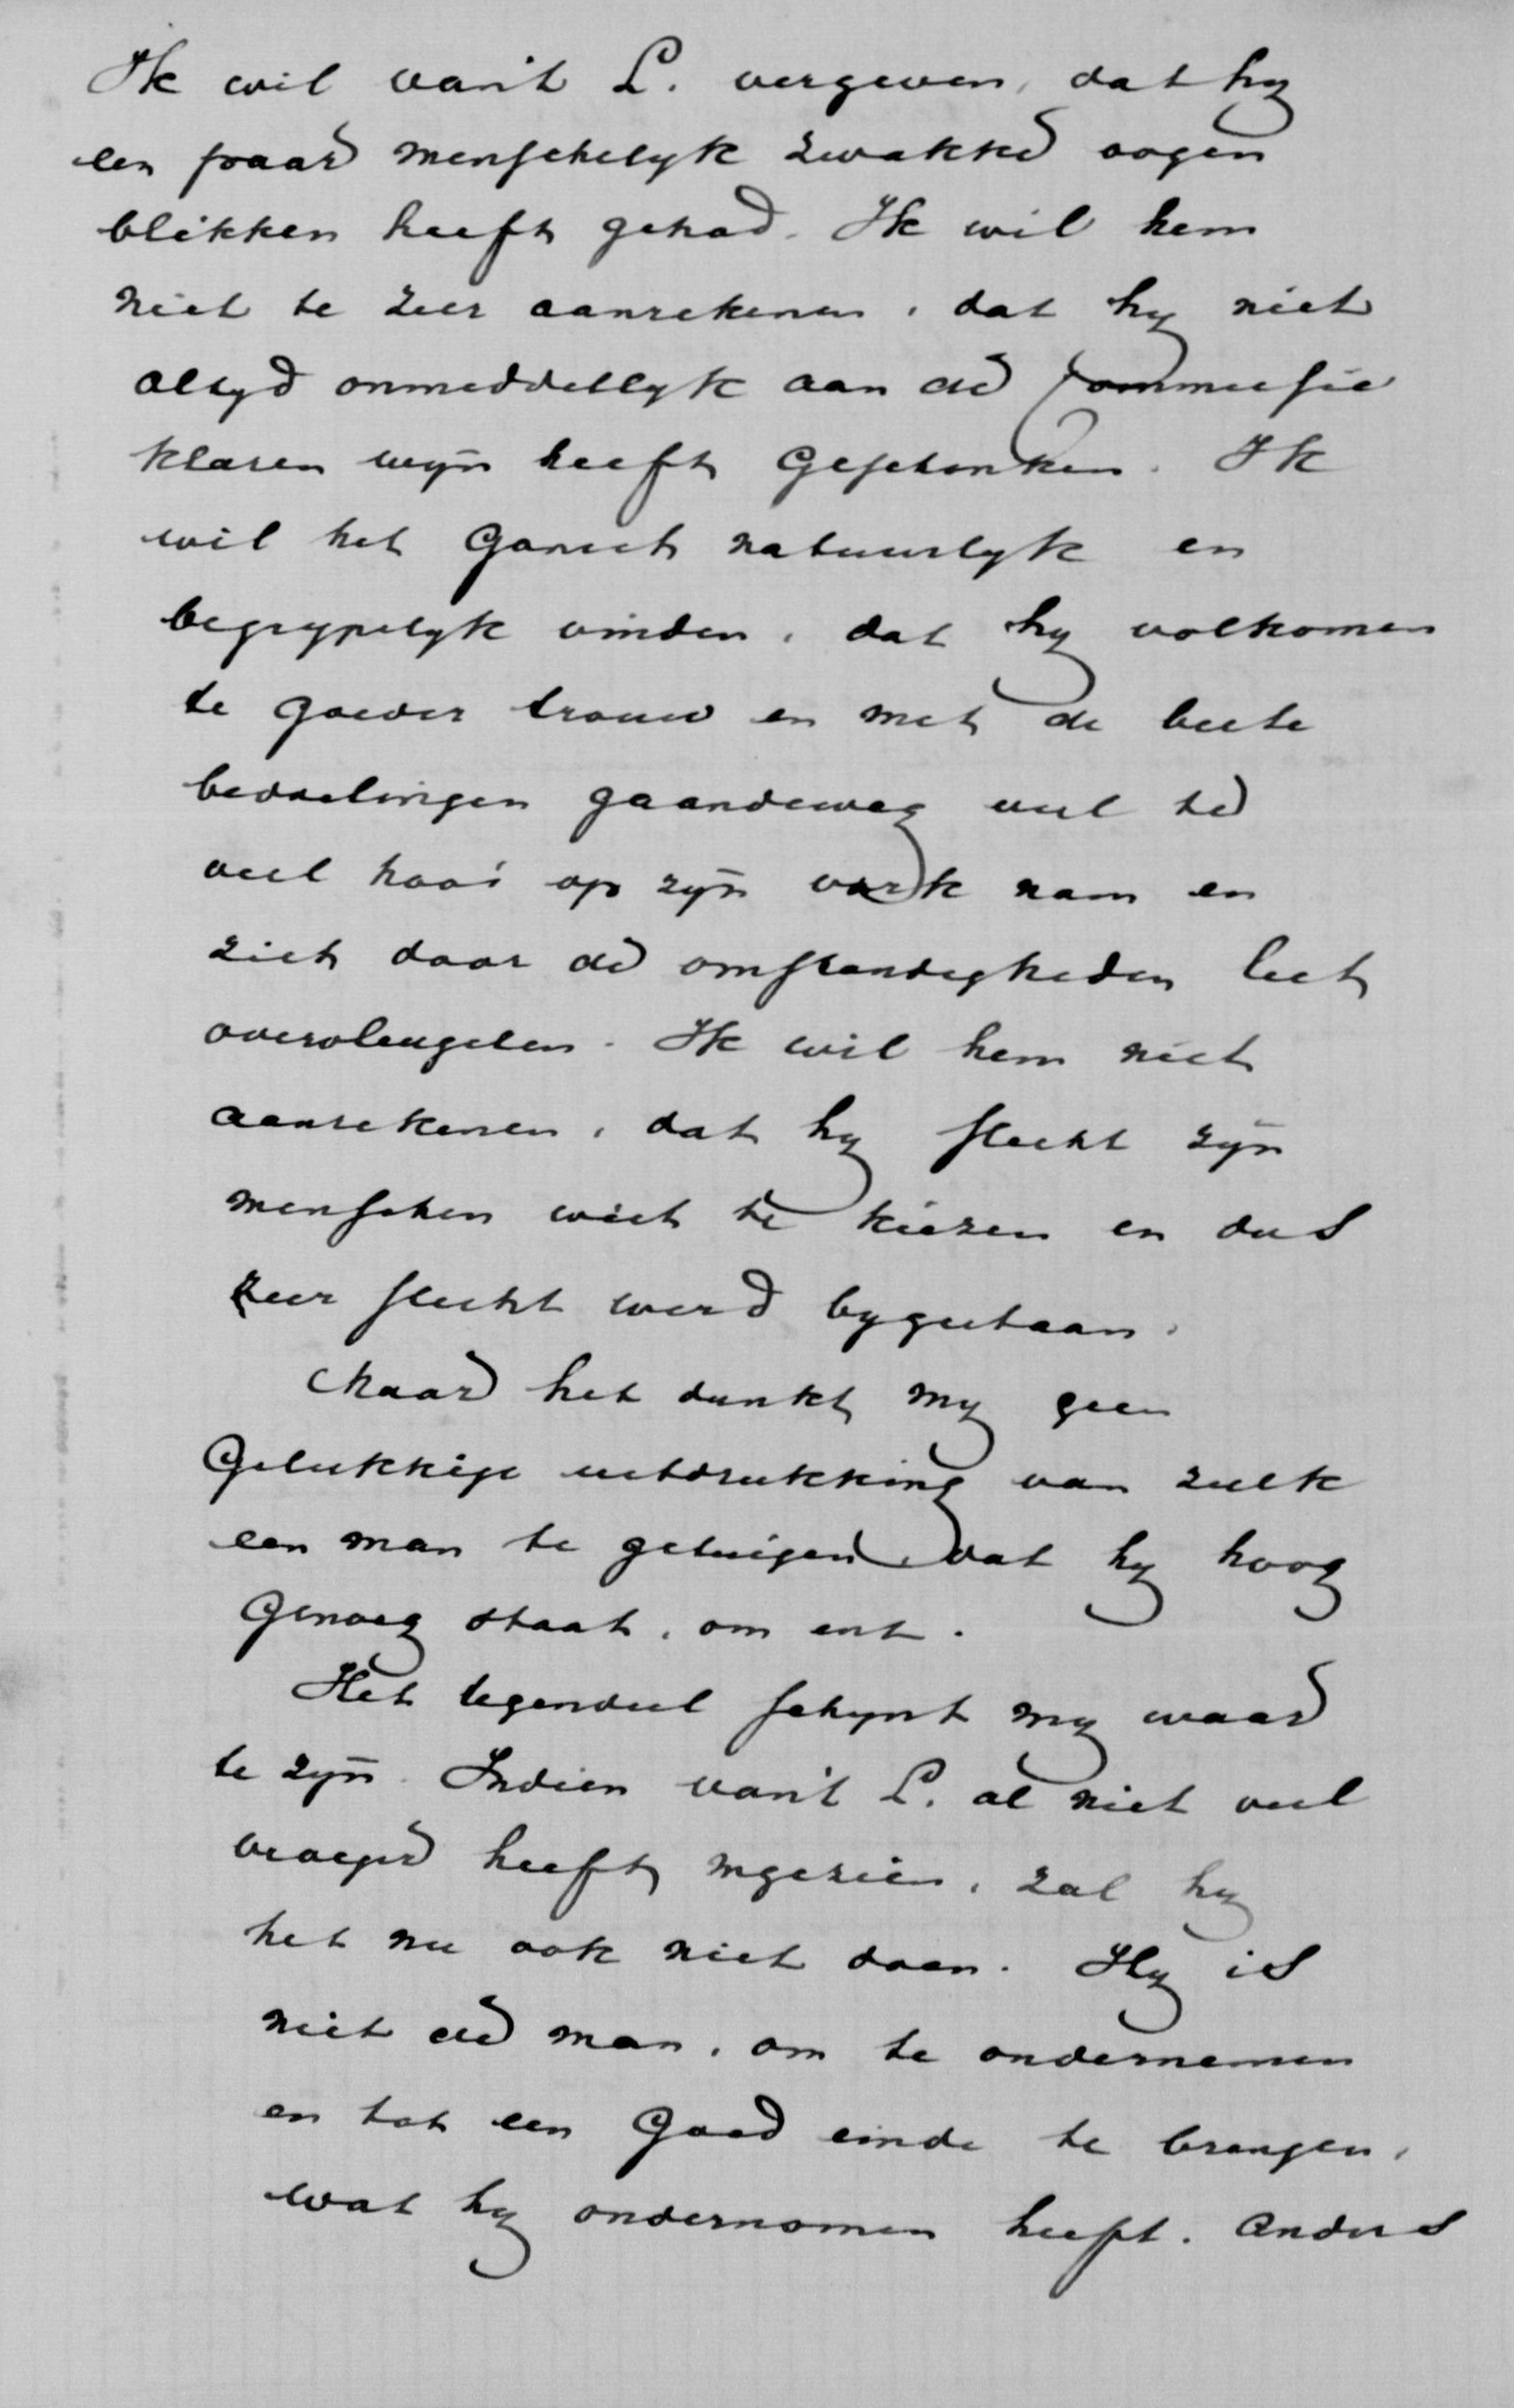 Ik wil van't L. vergeven, dat hy
een paar menschelyk zwakke oogen
blikken heeft gehad. Ik wil hem
niet te zeer aanrekenen, dat hy niet
altyd onmiddellyk aan de Commissie
klaren wyn heeft geschonken. Ik
wil het gansch natuurlyk en
begrypelyk vinden, dat hy volkomen
te goeder trouw en met de beste
bedoelingen gaandeweg veel te
veel hooi op zyn vork nam en
zich door de omstandigheden liet
overvleugelen. Ik wil hem niet
aanrekenen, dat hy slecht zyn
menschen wist te kiezen en dus
zeer slecht werd bygestaan.
Maar het dunkt my geen
gelukkige uitdrukking van zulk
een man te getuigen, dat hy hoog
genoeg staat, om enz.
Het tegendeel schynt my waar
te zyn. Indien van't L. al niet veel
vroeger heeft ingezien, zal hy
het nu ook niet doen. Hy is
niet de man, om te ondernemen
en tot een goed einde te brengen,
wat hy ondernomen heeft. Anders